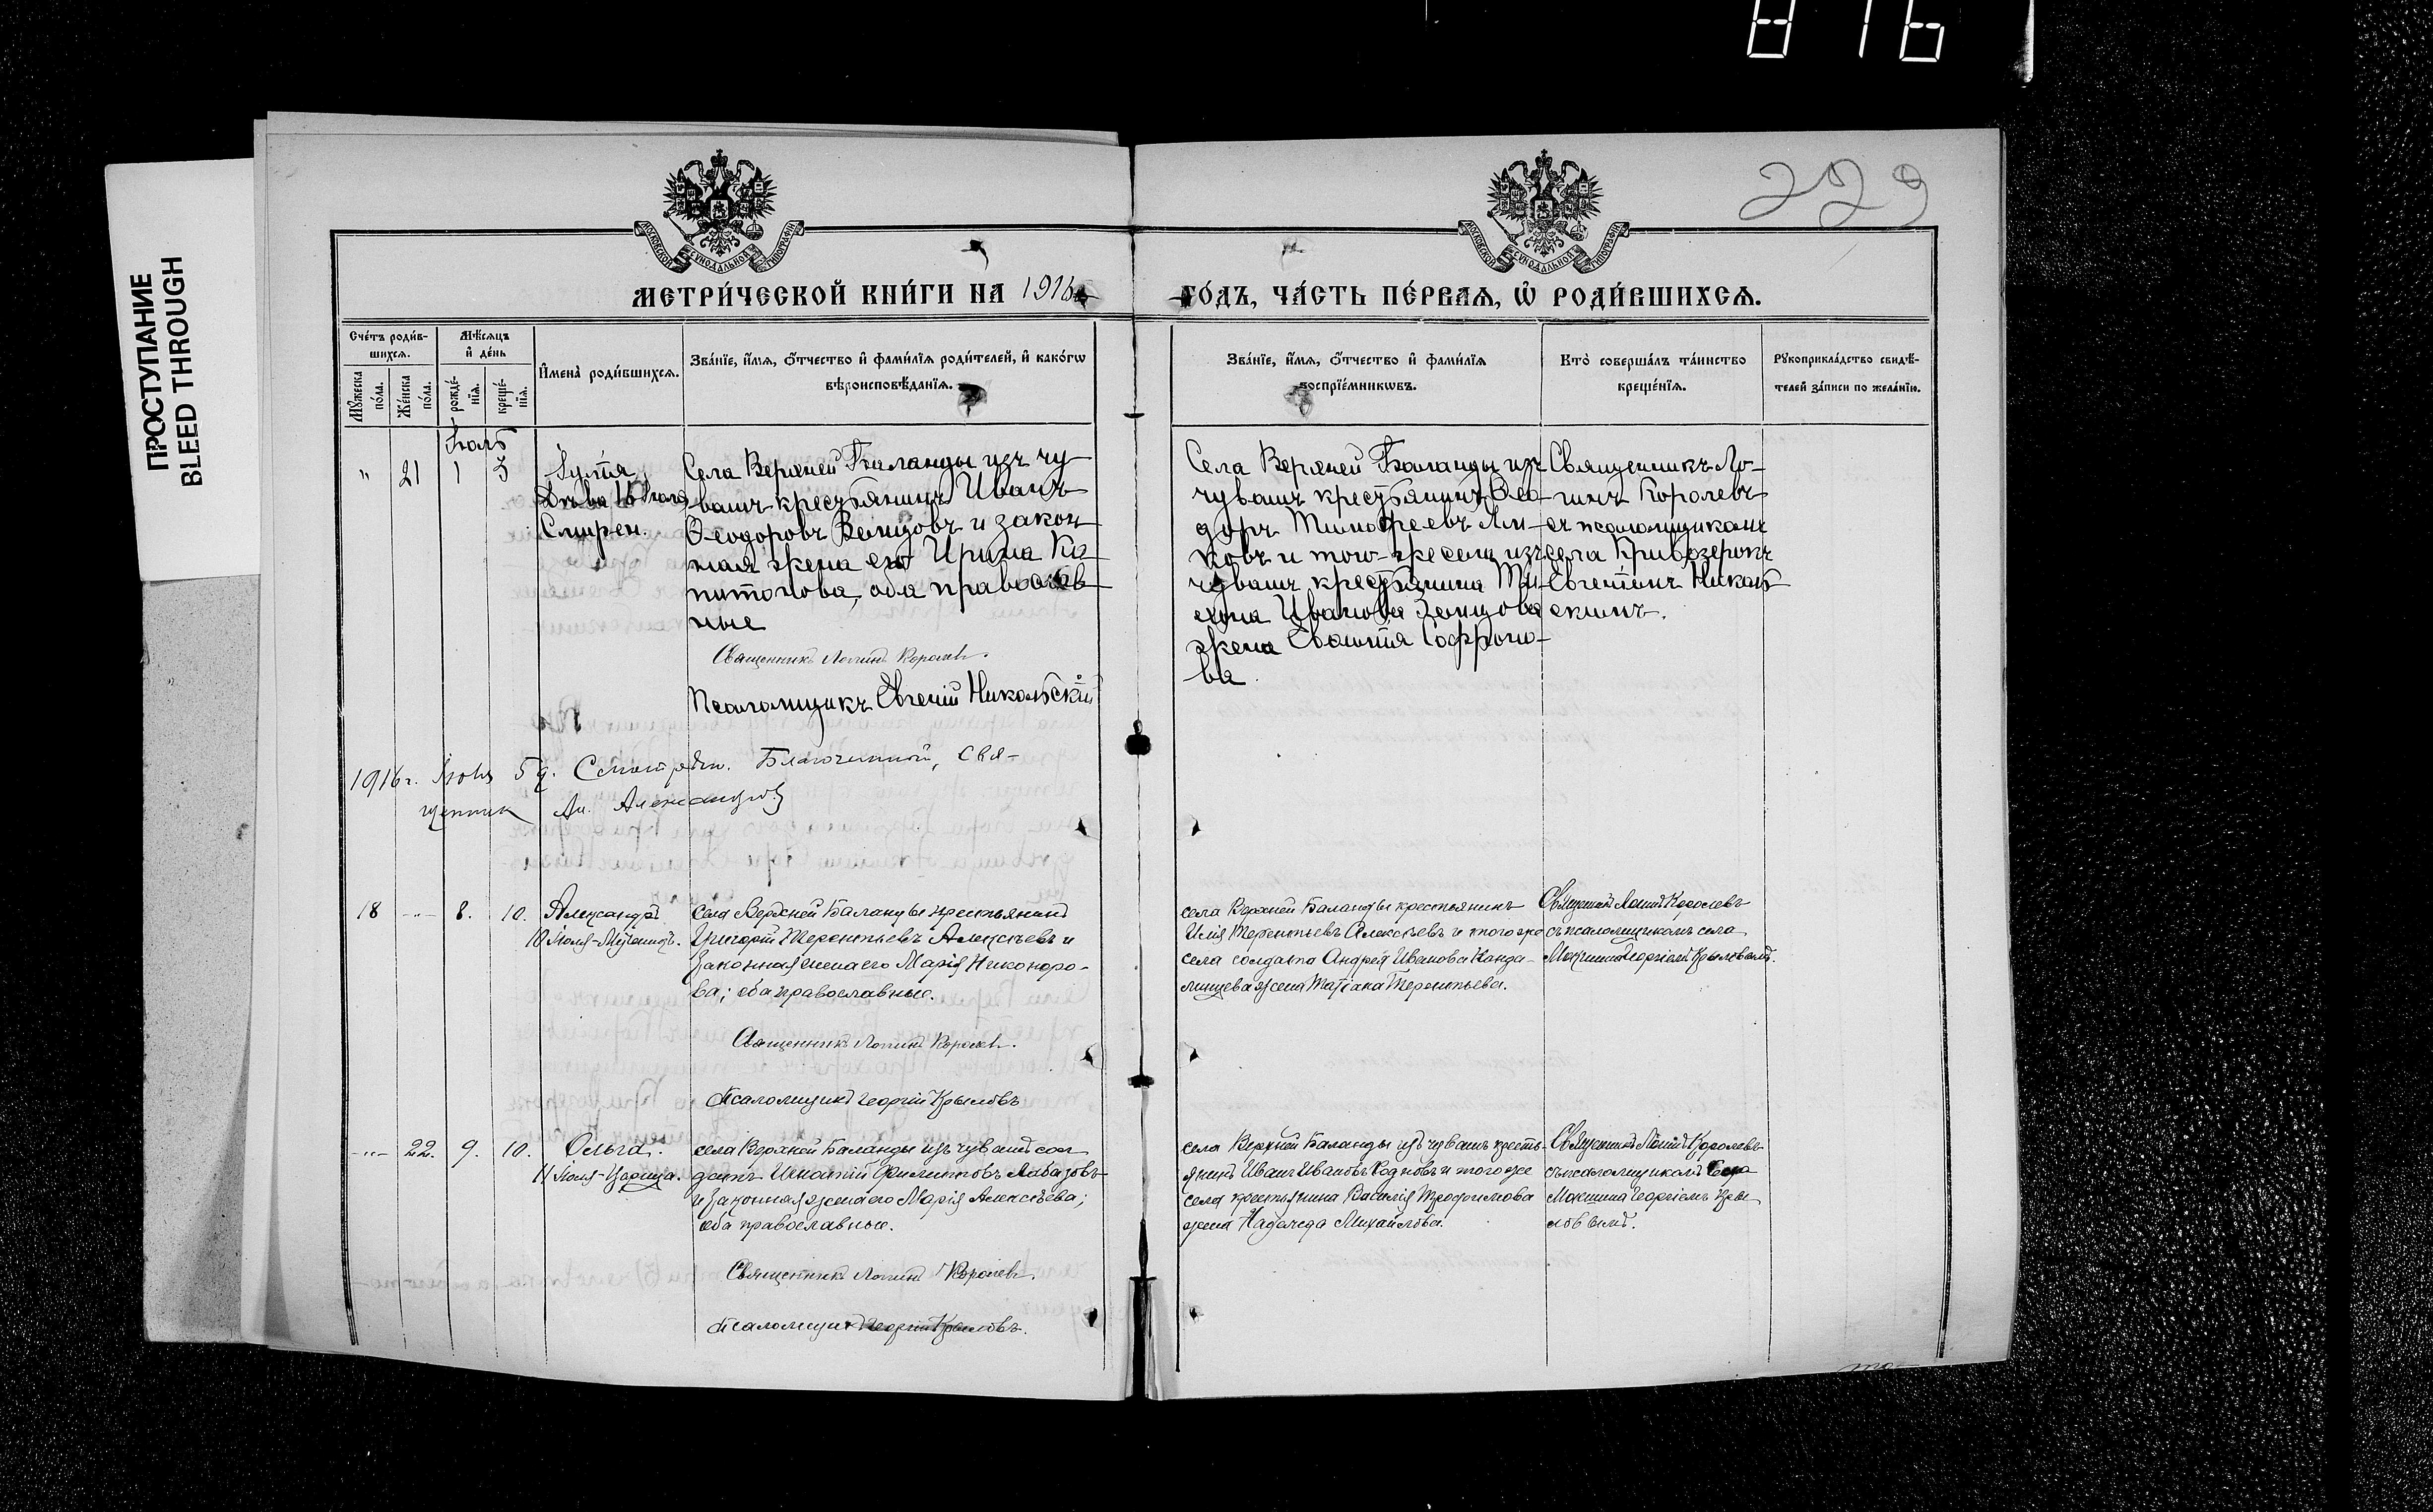 816
ПРОСТУПАНИЕ
BLEED THROUGH
229
МОСКОВСКОЙ СѴНОДАЛЬНОЙ ТИПОГРАФІИ
МОСКОВСКОЙ СѴНОДАЛЬНОЙ ТИПОГРАФІИ
МЕТРИ́ЧЕСКОЙ КНИ́ГИ НА 1916
ГО́ДЪ, ЧА́СТЬ ПЕ́РВАѦ, Ѡ҆ РОДИ́ВШИХСѦ.
Сче́тъ роди́в-
шихсѧ.
Мꙋ́жеска по́ла.
Же́нска по́ла.
Мѣ́сѧцъ
и҆ де́нь
рожде́-
нїѧ.
креще́-
нїѧ.
И҆мена̀ роди́вшихсѧ.
Зва́нїе, и҆́мѧ, ѻ҆́тчество и҆ фами́лїѧ роди́телей, и҆ како́гѡ
вѣроисповѣ́данїѧ.
Зва́нїе, и҆́мѧ, ѻ҆́тчество и҆ фами́лїѧ
воспрїе́мникѡвъ.
Кто̀ соверша́лъ та́инство
креще́нїѧ.
Рꙋкоприкла́дство свидѣ́-
телей за́писи по жела́нїю.
Іюль
" 21 1 3
Смирен.
Села Верхней Баланды изъ чу-
вашъ крестьянинъ Иванъ
Ѳеодоровъ и закон
ная жена его Ирина Ка-
питонова, оба православ
ные
Священникъ Логинъ Королевъ.
Псаломщикъ Евгеній Никольскій
Села Верхней Баланды изъ
чувашъ крестьянинъ Ѳео-
доръ Тимофеевъ
ковъ и того-же села изъ
чувашъ крестьянина Ти-
хона Иванова Земцова
жена Софроно-
ва.
Священникъ Ло-
гинъ Королевъ
съ псаломщикомъ
села Кривозерокъ
Евгеніемъ Николь
скимъ.
1916 г. 5 д. Смотрѣлъ. Благочинный, Свя-
щенник Ал. Александров
18 -"- 8. 10. Александръ
10 Іюля-Мученикъ.
села Верхней Баланды крестьянинъ
Григорій Терентьевъ Алексѣевъ и
законная жена его Марія Никоноро-
ва; оба православные.
Священникъ Логинъ Королевъ.
Псаломщикъ Георгій Крыловъ
села Верхней Баланды крестьянинъ
Илія Терентьевъ Алексѣевъ и того же
села солдата Андрея Иванова
жена Татіана Терентьева.
Священникъ Логинъ Королевъ
съ псаломщикомъ села
Мокшина Георгіемъ Крыловымъ.
-"- 22. 9. 10. Ольга.
11 Іюля-Царица.
села Верхней Баланды изъ чувашъ сол
датъ Игнатій Филипповъ
и законная жена его Марія Алексѣева;
оба православные.
Священникъ Логинъ Королевъ.
Псаломщикъ Георгій Крыловъ.
села Верхней Баланды изъ чувашъ кресть-
янинъ Иванъ Ивановъ Родновъ и того же
села крестьянина Василія Трофимова
жена Надежда Михайлова.
Священникъ Логинъ Королевъ
съ псаломщикомъ села
Мокшина Георгіемъ Кры
ловымъ.